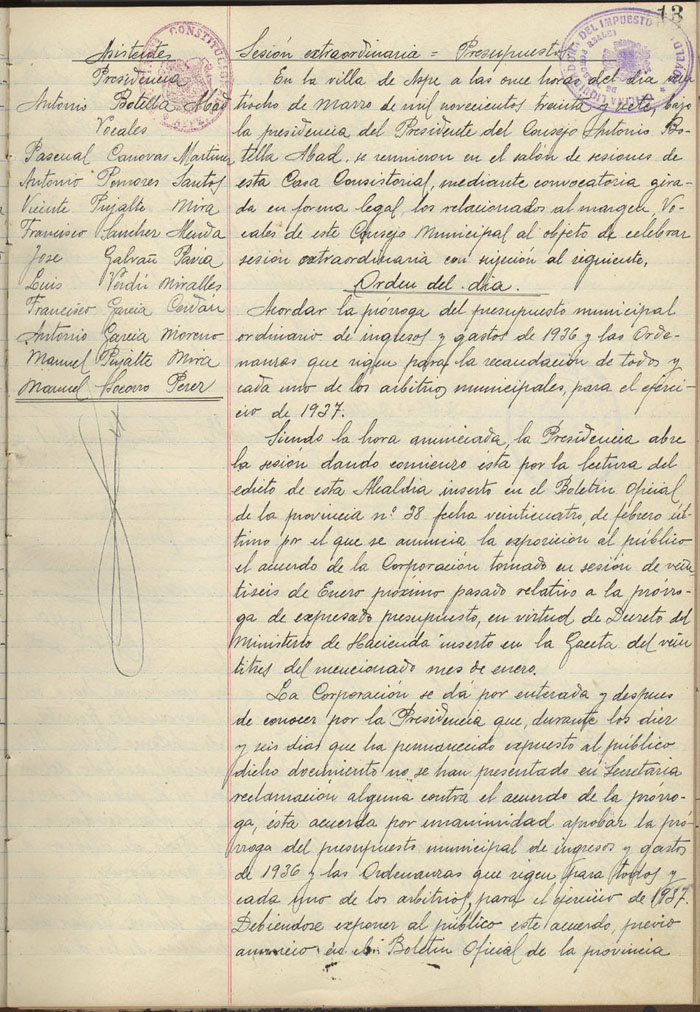 13
Asistentes
Presidencia
Antonio Botella Abad
Vocales
Pascual Canovas Martinez
Antonio Pomares Santos
Vicente Pujalte Mira
Francisco Sanchez
Jose Galvañ Pavia
Luis Verdú Miralles
Francisco Garcia Cerdán
Antonio Garcia Moreno
Manuel Pujalte Mira
Manuel Socorro Perez
Sesión extraordinaria = Presupuesto
En la villa de Aspe a las once horas del dia vein
tiocho de Marzo de mil novecientos treinta y siete, bajo
la presidencia del Presidente del Consejo Antonio Bo-
tella Abad. se reunieron en el salón de sesiones de
esta Casa Consistorial, mediante convocatoria gira-
da en forma legal, los relacionados al margen, Vo-
cales de este Consejo Municipal al objeto de celebrar
sesión extraordinaria con sujeción al siguiente,
Orden del dia.
Acordar la próroga del presupuesto municipal
ordinario de ingresos y gastos de 1936 y las Orde-
nanzas que rigen para la recaudación de todos y
cada uno de los arbitrios municipales, para el ejerci-
cio de 1937.
Siendo la hora anunciada, la Presidencia abre
la sesión dando comienzo ésta por la lectura del
edicto de esta Alcaldia inserto en el Boletin Oficial
de la provincia nº 38 fecha veinticuatro, de febrero úl-
timo por el que se anuncia la exposición al público
el acuerdo de la Corporación tomado en sesión de vein
tiseis de Enero próximo pasado relativo a la prórro-
ga de expresado presupuesto, en virtud de Decreto del
Ministerio de Hacienda inserto en la Gaceta del vein
titres del mencionado mes de enero.
La Corporación se dá por enterada y despues
de conocer por la Presidencia que, durante los diez
y seis dias que ha permanecido expuesto al público
dicho documento no se han presentado en Secretaria
reclamación alguna contra el acuerdo de la prórro-
ga, ésta acuerda por unanimidad aprobar la pró-
rroga del presupuesto municipal de ingresos y gastos
de 1936 y las Ordenanzas que rigen para todos y
cada uno de los arbitrios, para el ejercicio de 1937.
Debiendose exponer al público este acuerdo, previo
anuncio en el Boletin Oficial de la provincia